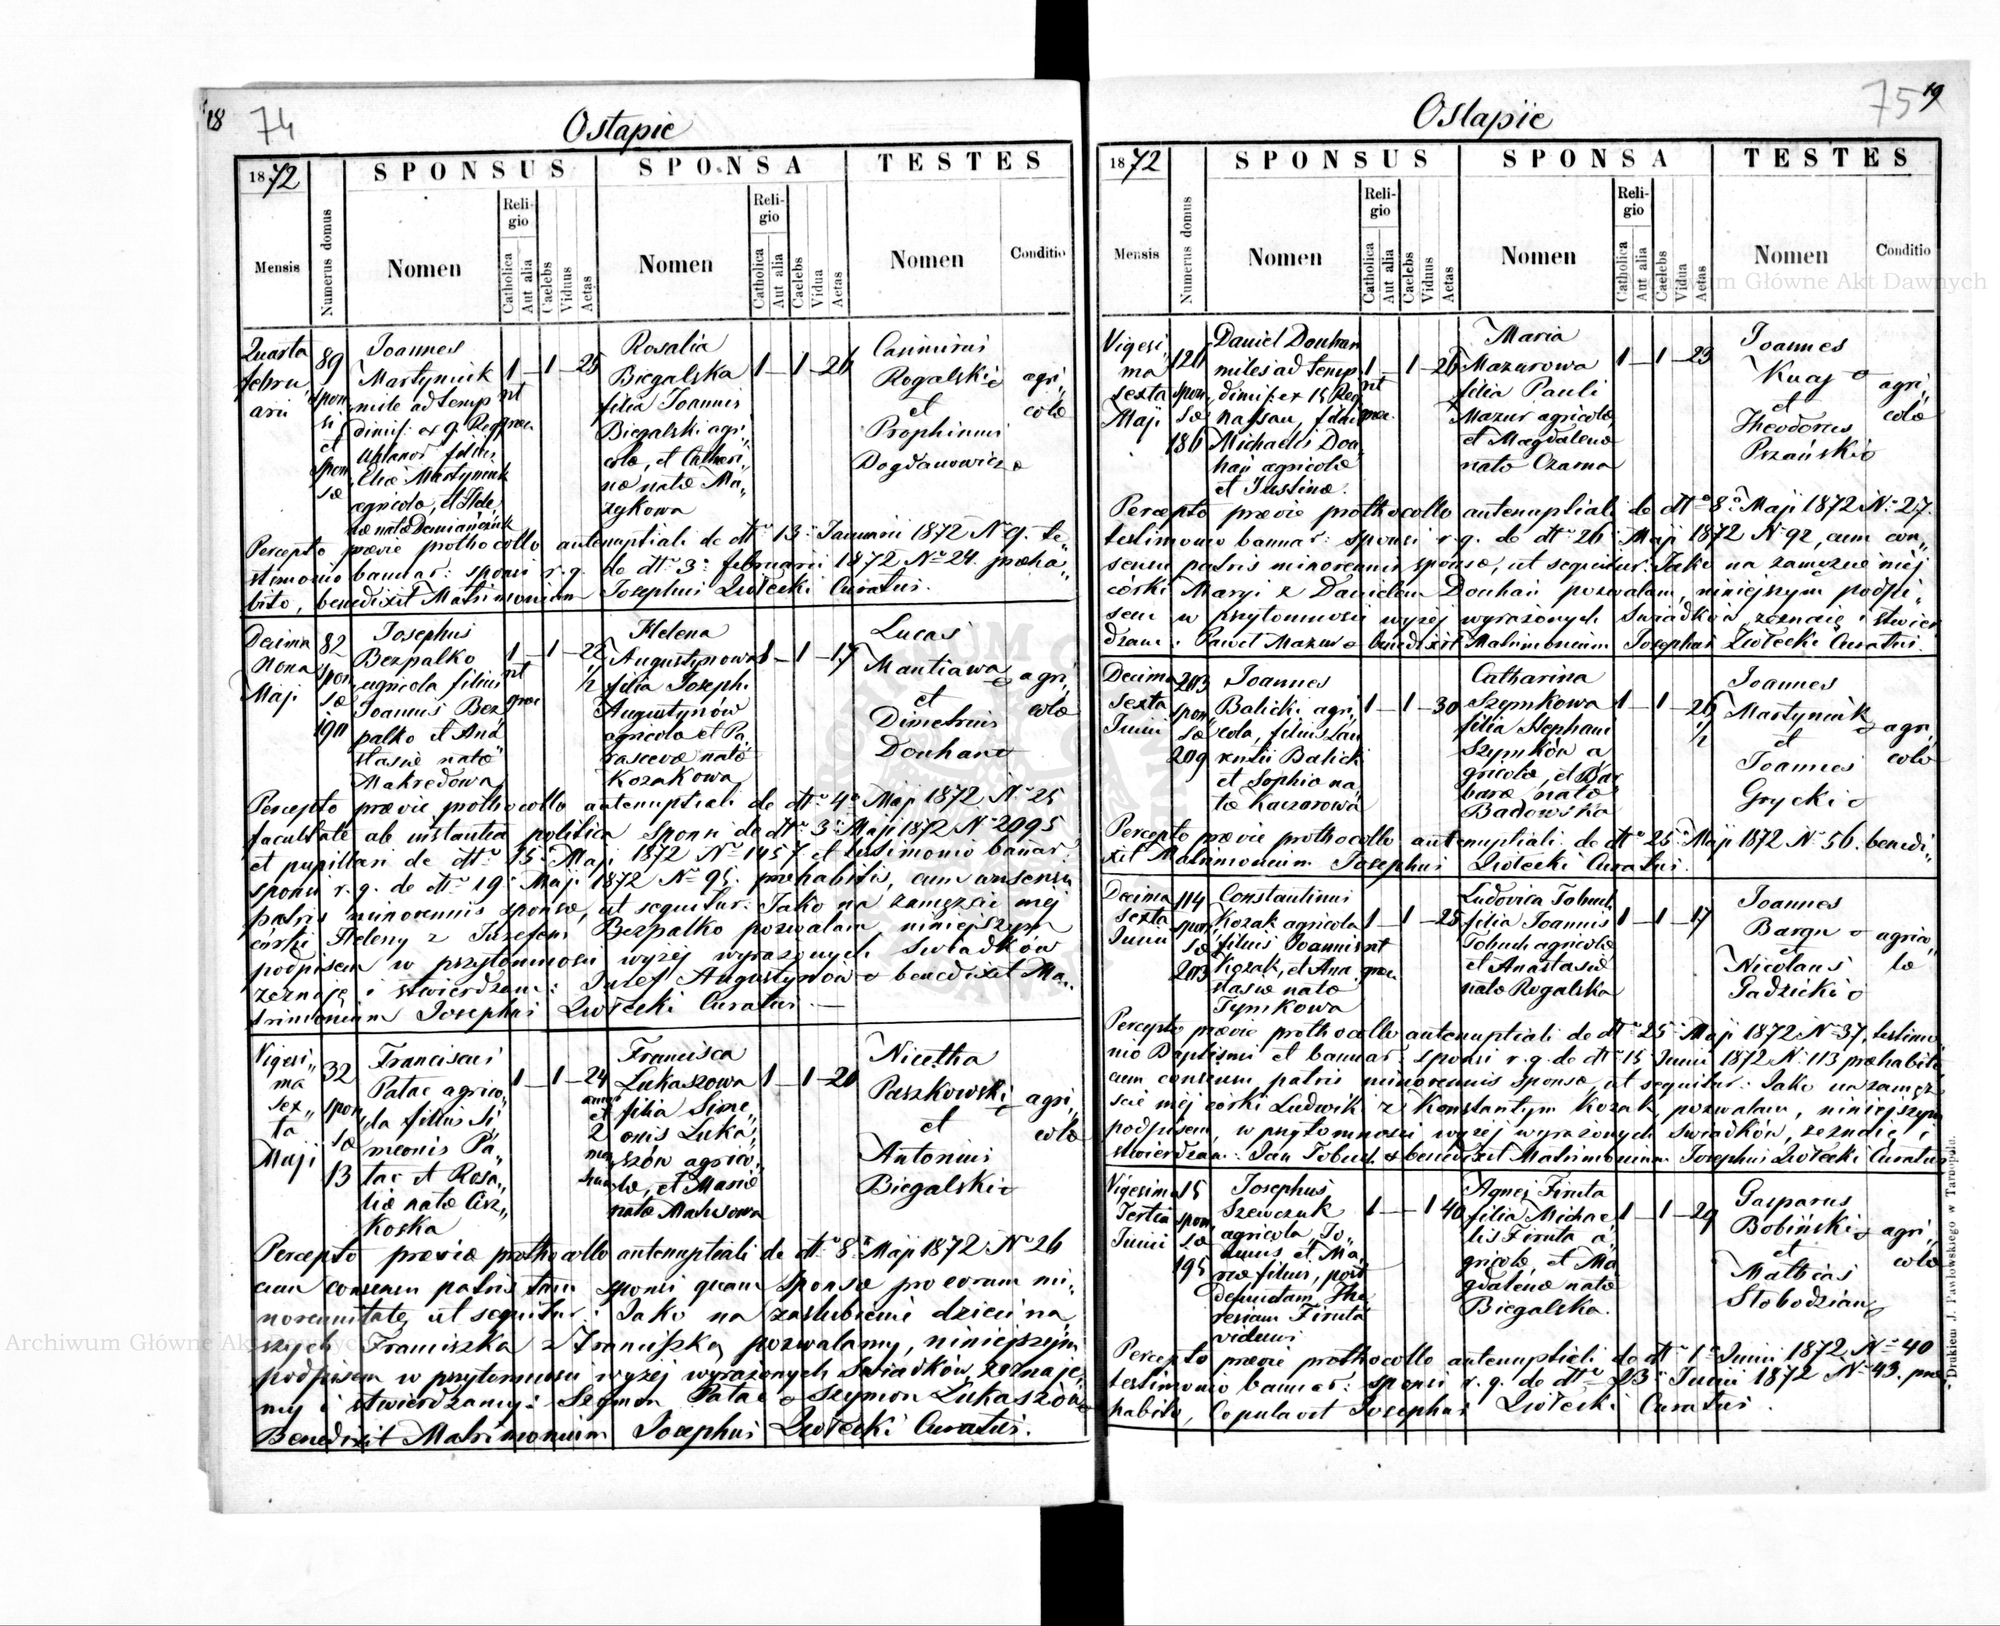 18 74
Ostapie
1872 SPONSUS SPONSA TESTES
Mensis Numerus domus Nomen Religio Catholica Aut alia Caelebs Viduus Aetas Nomen Religio Catholica Aut alia Caelebs Vidua Aetas Nomen Conditio
Quarta februarii
89 sponsi et sponsæ
Joannes
Martyniuk
miles ad temp
dimis: ex 9. Reg
Uhlanor filius
Eliæ Martyniuk
agricolæ, et Hele„
næ natæ Demiańczuk
1 — 1 — 25
rit græc
Rosalia
Biegalska
filia Joannis
Biegalski agri„
colæ, et Cathari„
næ natæ Ma„
zykowa
1 — 1 — 26
Casimirus
Rogalski
et
Prophinus
Bogdanowicz
agri„
colæ
Percepto prævie prothocollo antenuptiali de dtto 13 Januarii 1872 N 9. te„
stimonio bannar: sponsi r. g. de dtto 3 februarii 1872 No 24. præha„
bito, benedixit Matrimonium Josephus Curatus.
Decima
Nona
Maji
82
spon
sæ
190
Josephus
Bezpalko
agricola filius
Joannis Bez
palko et Ana
stasiæ natæ
Makredowa
1 — 1 — 22
1/2
rit
græc
Helena
Augustynowa
filia Josephi
Augustynów
agricolæ et Pa
rascevæ natæ
Kozakowa
1 — 1 — 17
Lucas
Mantiawa
et
Dimetrius
Douhan
agri„
colæ
Percepto prævie prothocollo antenuptiali de dtto 4 Maji 1872 No 25
facultate ab instantia politica sponsi de dtto 3 Maji 1872 No 2095
et pupillari de dtto 15 Maji 1872 No 1457 et testimonio banar:
sponsi r. g. de dtto 19 Maji 1872 No 95. præhabitis, cum consensu
patris minorennis sponsæ, ut sequitur: Jako na zamęzcie méj
córki Heleny z Józefem Bezpalko pozwalam, niniejszym
podpisem w przytomności wyżéj wyrażonych Świadków
zeznaję i stwierdzam: Jozef Augustynów benedixit Ma„
trimonium Josephus Curatus.
Vigesi„
ma
sex„
ta
Maji
32
spon„
sæ
13
Franciscus
Patac agrico„
la filius Si„
meonis Pa„
tac et Rosa„
liæ natæ Cisz„
Koska
1 — 1 — 24
annor
et
2
men
sium
Francisca
Lukaszowa
filia Sime„
onis Luka„
szów agrico„
læ, et Mariæ
natæ Matusowa
1 — 1 — 20
Nicetha
Paszkowski
et
Antonius
Biegalski
agri„
colæ
Percepto prævie prothocollo antenuptiali de dtto 8 Maji 1872 No 26
cum consensu patris tam sponsi quam sponsæ pro eorum mi„
norennitate, ut sequitur: Jako na zaslubienie dzieci na„
szych Franciszka z Franciszką pozwalamy, niniejszym
podpisem w przytomności wyżéj wyrażonych Świadków, zeznaje„
my i stwierdzamy: Patac Szymon Lukaszów
Benedixit Matrimonium Josephus Curatus.
75 19
Ostapie
1872 SPONSUS SPONSA TESTES
Mensis Numerus domus Nomen Religio Catholica Aut alia Caelebs Viduus Aetas Nomen Religio Catholica Aut alia Caelebs Vidua Aetas Nomen Conditio
Vigesi„
ma
sexta
Maji
120
spon
sæ
186
Daniel Douhan
miles ad temp
dimis: ex 15 Reg
Nassau, filius
Michaelis Dou„
han agricolæ
et Justinæ.
1 — 1 — 26
rit
græc
Maria
Mazurowa
filia Pauli
Mazur agricolæ
et Magdalenæ
natæ Czarna
1 — 1 — 23
Joannes
Kucaj
et
Theodorus
Pezański
agri„
colæ
Percepto prævie prothocollo antenuptiali de dtto 8 Maji 1872 No 27.
testimonio bannar: sponsi r. g. de dtto 26 Maji 1872 No 92, cum con„
sensu patris minorennis sponsæ, ut sequitur: Jako na zamęzcie méj
córki Maryi z Danielem Douhan pozwalam, niniejszym podpi„
sem w przytomności wyżéj wyrażonych Świadków, zeznaję i stwier
dzam: Paweł Mazur benedixit Matrimonium Josephus Curatus.
Decima
Sexta
Junii
203
spon
sæ
209
Joannes
Balicki agri„
cola, filius Lau
rentii Balicki
et Sophiæ na„
tæ Kaczorowa
1 — 1 — 30
Catharina
Szymkowa
filia Stephani
Szymków a
gricolæ, et Bar
baræ natæ
Badowska
1 — 1 — 26
1/2
Joannes
Martyniuk
et
Joannes
Grycki
agri„
colæ
Percepto prævie prothocollo antenuptiali de dtto 25 Maji 1872 No 56. benedi„
xit Matrimonium Josephus Curatus.
Decima
Sexta
Junii
114
spon
sæ
203
Constantinus
Kozak agricola
filius Joannis
Kozak, et Ana
stasiæ natæ
Tymkowa
1 — 1 — 25
rit
græc
Ludovica Tobuch
filia Joannis
Tobuch agricolæ
et Anastasiæ
natæ Rogalska
1 — 1 — 17
Joannes
Bargu
et
Nicolaus
Gadzicki
agrico„
læ
Percepto prævie prothocollo antenuptiali de dtto 25 Maji 1872 No 37, testimo„
nio Baptismi et bannar: sponsi r. g. de dtto 15 Junii 1872 No 113 præhabito
cum consensu patris minorennis sponsæ, ut sequitur: Jako na zamęz
scie méj córki Ludwiki z Konstantym Kozak, pozwalam, niniejszym
podpisem, w przytomności wyżéj wyrażonych Świadków, zeznaję i
stwierdzam: Jan Tobuch benedixit Matrimonium Josephus Curatus
Vigesima
Tertia
Junii
15
spon
sæ
195
Josephus
Szewczuk
agricola, Jo„
annis et Ma„
riæ filius, post
demortuam The
resiam Firuta
viduus
1 — 1 40
Agnes Firuta
filia Michae
lis Firuta a„
gricolæ, et Ma
gdalenæ natæ
Biegalska.
1 — 1 — 29
Gasparus
Bobiński
et
Mathias
Słobodzian
agri„
colæ
Percepto prævie prothocollo antenuptiali de dtto 1 Junii 1872 No 40
testimonio bannar: sponsi r. g. de dtto 23 Junii 1872 No 43. præ
habito, Copulavit Josephus Curatus.
Drukiem J. Pawłowskiego w Tarnopolu.
Archiwum Główne Akt Dawnych
Archiwum Główne Akt Dawnych